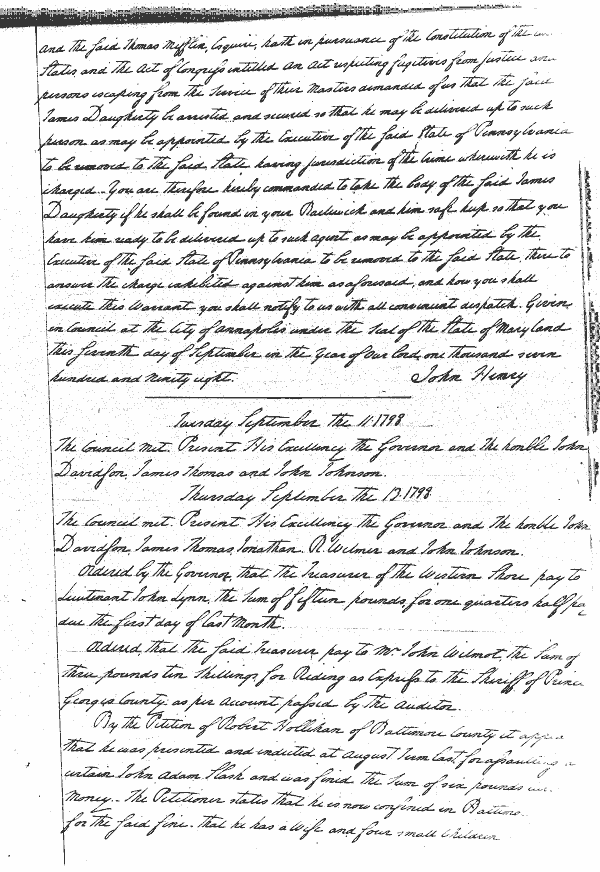 and the said Thomas Mifflin, Esquire, hath in pursuance of the Constitution of the
States and the Act of Congress intitled An Act respecting fugitives from Justice and
persons escaping from the Service of their Masters demanded of us that the said
James Daugherty be arrested and secured so that he may be delivered up to such
person as may be appointed by the Executive of the said State of Pennsylvania
to be removed to the said State having jurisdiction of the Crime wherewith he is
charged. You are therefore hereby commanded to take the body of the said James
Daugherty if he shall be found in your Bailiwick and him safe keep so that you
have him ready to be delivered up to such agent as may be appointed by the
Executive of the said State of Pennsylvania to be removed to the said State, there to
answer the charge exhibited against him as aforesaid, and how you shall
execute this Warrant you shall notify to us with all convenient dispatch. Given
in Council at the City of Annapolis under the Seal of the State of Maryland
this seventh day of September in the Year of Our Lord, one thousand seven
hundred and Ninety eight. John Henry
Tuesday September the 11. 1798
The Council met. Present His Excellency the Governor and the honble John
Davidson, James Thomas and John Johnson.
Thursday September the 13. 1798
The Council met. Present His Excellency the Governor and the honble John
Davidson, James Thomas, Jonathan R. Wilmer and John Johnson.
Ordered by the Governor, that the Treasurer of the Western Shore pay to
Lieutenant John Lynn, the Sum of fifteen pounds, for one quarters half pa
due the first day of last Month.
Ordered, that the said Treasurer pay to Mr John Wilmot, the Sum of
three pounds ten Shillings for Riding as Express to the Sheriff of Prince
Georges County, as per account passed by the Auditor.
By the Petition of Robert Hollihan of Baltimore County it appea
that he was presented and indicted at August Term last, for assaulting a
certain John Adam Slash and was fined the Sum of six pounds
Money. The Petitioner states that he is now confined in Baltimo
for the said fine. that he has a Wife and four small Children